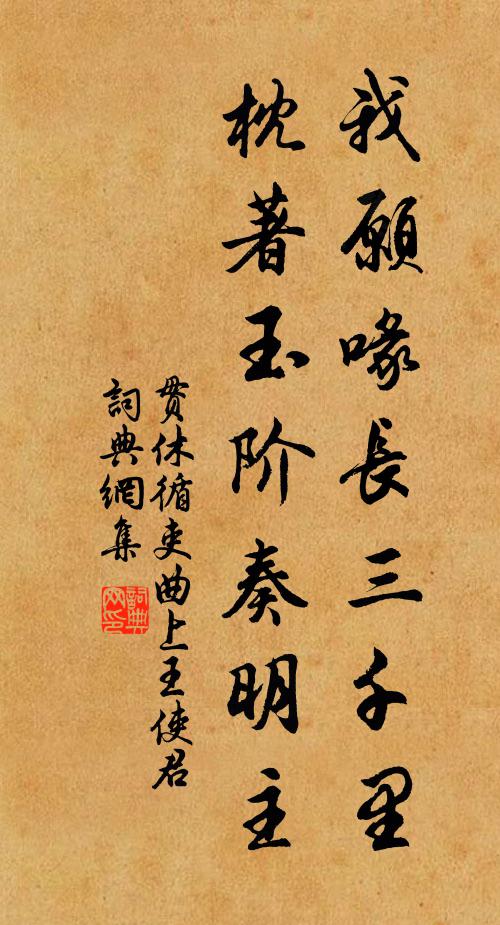 我願喙長三千里
枕著玉阶奏明主
贯休循吏曲上王使君
詞典網集
詞典
网印